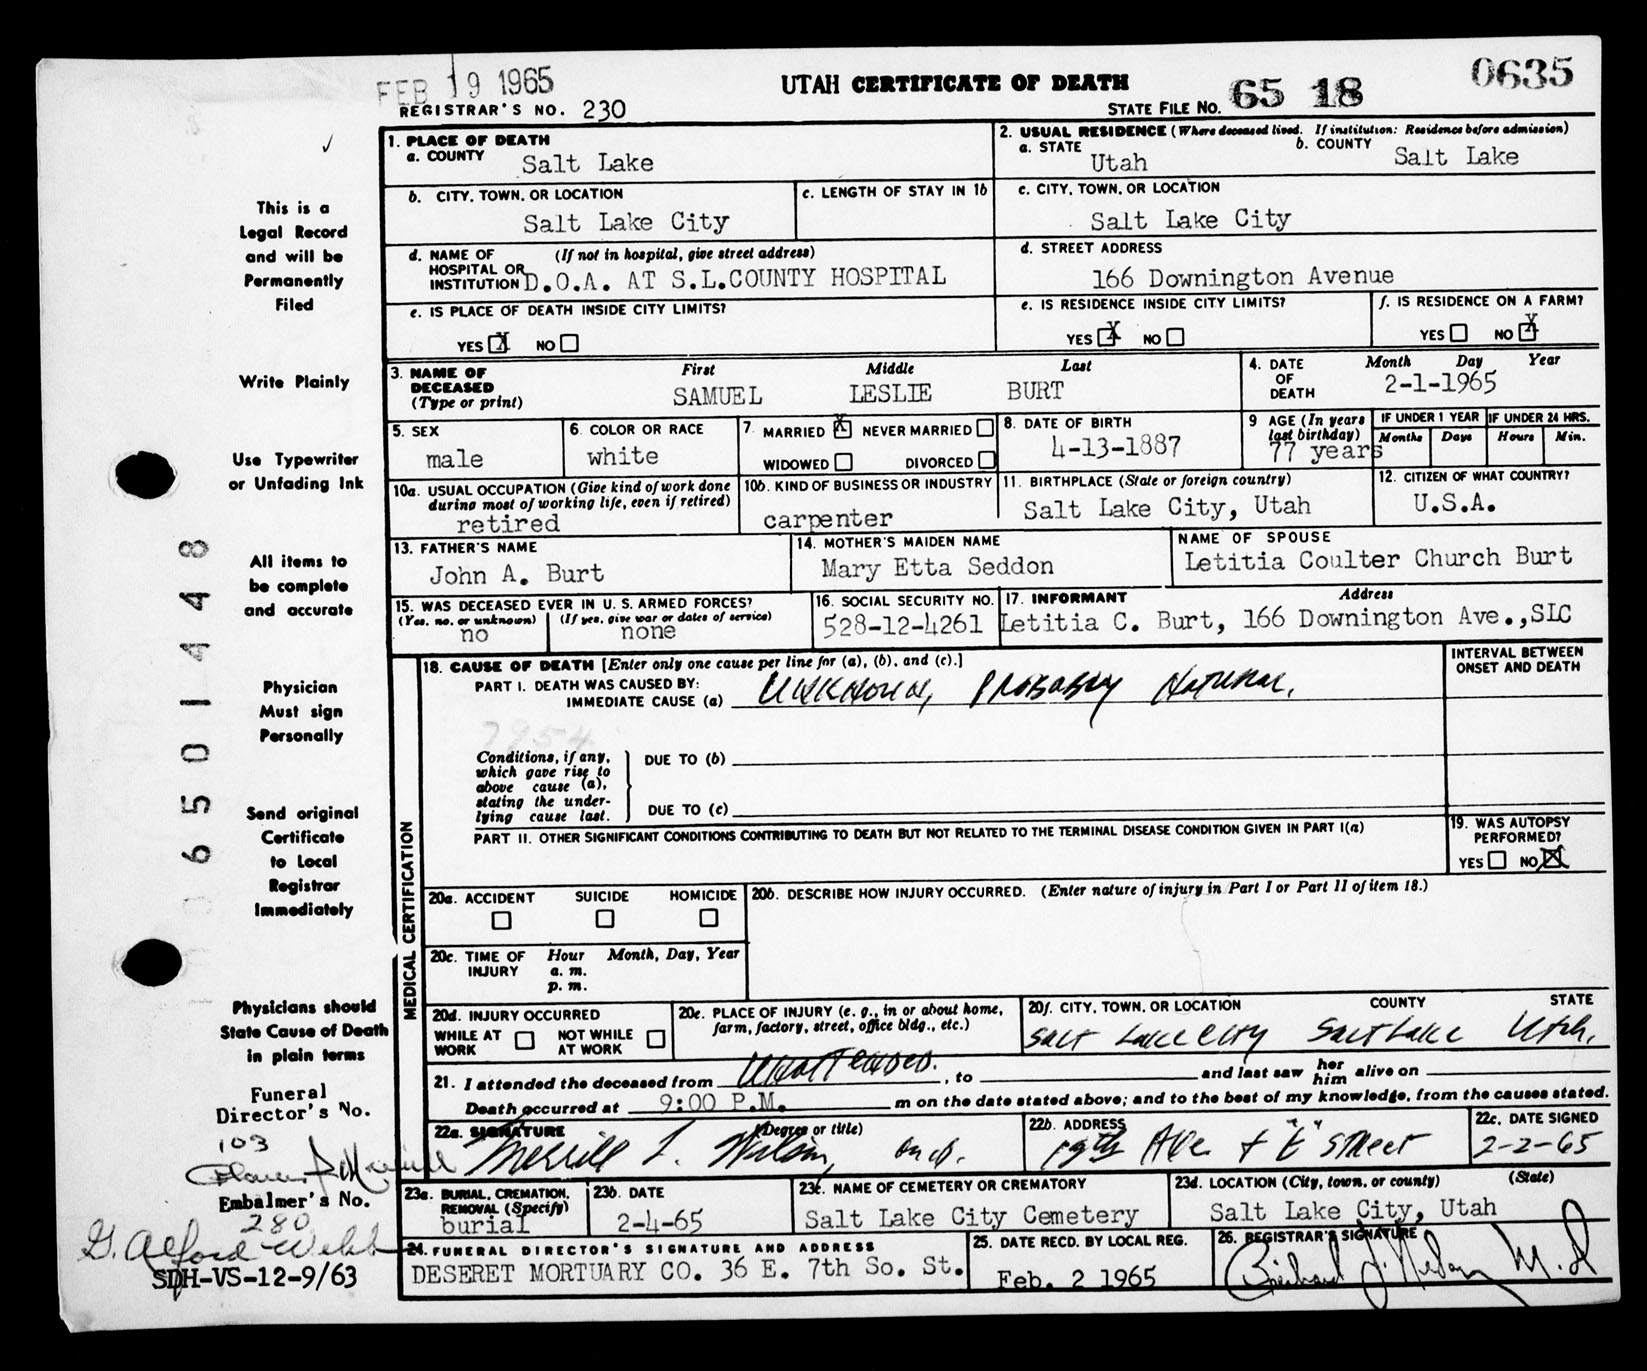 FEB 19 1965
UTAH CERTIFICATE OF DEATH
0635
REGISTRAR'S NO. 230
STATE FILE NO. 65 18
1. PLACE OF DEATH
a. COUNTY Salt Lake
2. USUAL RESIDENCE (Where deceased lived. If institution: Residence before admission)
a. STATE Utah b. COUNTY Salt Lake
b. CITY, TOWN, OR LOCATION Salt Lake City
c. LENGTH OF STAY IN 1b
c. CITY, TOWN, OR LOCATION Salt Lake City
d. NAME OF HOSPITAL OR INSTITUTION (If not in hospital, give street address) D.O.A. AT S.L.COUNTY HOSPITAL
d. STREET ADDRESS 166 Downington Avenue
e. IS PLACE OF DEATH INSIDE CITY LIMITS?
YES X NO
e. IS RESIDENCE INSIDE CITY LIMITS?
YES X NO
f. IS RESIDENCE ON A FARM?
YES NO X
3. NAME OF DECEASED (Type or print)
First Middle Last
SAMUEL LESLIE BURT
4. DATE OF DEATH Month Day Year
2-1-1965
5. SEX male
6. COLOR OR RACE white
7 MARRIED X NEVER MARRIED
WIDOWED DIVORCED
8. DATE OF BIRTH 4-13-1887
9 AGE (In years last birthday) 77 years
IF UNDER 1 YEAR Months Days
IF UNDER 24 HRS. Hours Min.
10a. USUAL OCCUPATION (Give kind of work done during most of working life, even if retired) retired
10b. KIND OF BUSINESS OR INDUSTRY carpenter
11. BIRTHPLACE (State or foreign country) Salt Lake City, Utah
12. CITIZEN OF WHAT COUNTRY? U.S.A.
13. FATHER'S NAME John A. Burt
14. MOTHER'S MAIDEN NAME Mary Etta Seddon
NAME OF SPOUSE Letitia Coulter Church Burt
15. WAS DECEASED EVER IN U.S. ARMED FORCES?
(Yes, no, or unknown) no
(If yes, give war or dates of service) none
16. SOCIAL SECURITY NO. 528-12-4261
17. INFORMANT Address
Letitia C. Burt, 166 Downington Ave.,SLC
MEDICAL CERTIFICATION
18. CAUSE OF DEATH [Enter only one cause per line for (a), (b), and (c).]
INTERVAL BETWEEN ONSET AND DEATH
PART I. DEATH WAS CAUSED BY:
IMMEDIATE CAUSE (a) Unknown, Probably Natural.
7954
Conditions, if any, which gave rise to above cause (a), stating the under-lying cause last.
DUE TO (b)
DUE TO (c)
PART II. OTHER SIGNIFICANT CONDITIONS CONTRIBUTING TO DEATH BUT NOT RELATED TO THE TERMINAL DISEASE CONDITION GIVEN IN PART I(a)
19. WAS AUTOPSY PERFORMED?
YES NO X
20a. ACCIDENT SUICIDE HOMICIDE
20b. DESCRIBE HOW INJURY OCCURRED. (Enter nature of injury in Part I or Part II of item 18.)
20c. TIME OF INJURY Hour Month, Day, Year
a. m.
p. m.
20d. INJURY OCCURRED
WHILE AT WORK NOT WHILE AT WORK
20e. PLACE OF INJURY (e. g., in or about home, farm, factory, street, office bldg., etc.)
20f. CITY, TOWN, OR LOCATION COUNTY STATE
Salt Lake City Salt Lake Utah.
21. I attended the deceased from Unattended. , to and last saw her him alive on
Death occurred at 9:00 P.M. m on the date stated above; and to the best of my knowledge, from the causes stated.
22a. SIGNATURE (Degree or title)
Merrill L. Wilson, m.d.
22b. ADDRESS
19th Ave + "E" Street
22c. DATE SIGNED
2-2-65
23a. BURIAL, CREMATION, REMOVAL (Specify) burial
23b. DATE 2-4-65
23c. NAME OF CEMETERY OR CREMATORY Salt Lake City Cemetery
23d. LOCATION (City, town, or county) (State)
Salt Lake City, Utah
24. FUNERAL DIRECTOR'S SIGNATURE AND ADDRESS
DESERET MORTUARY CO. 36 E. 7th So. St.
25. DATE RECD. BY LOCAL REG.
Feb. 2 1965
26. REGISTRAR'S SIGNATURE
This is a
Legal Record
and will be
Permanently
Filed
Write Plainly
Use Typewriter
or Unfading Ink
All items to
be complete
and accurate
Physician
Must sign
Personally
Send original
Certificate
to Local
Registrar
Immediately
Physicians should
State Cause of Death
in plain terms
Funeral
Director's No.
103
Embalmer's No.
280
G. Alford Webb
SDH-VS-12-9/63
06501448